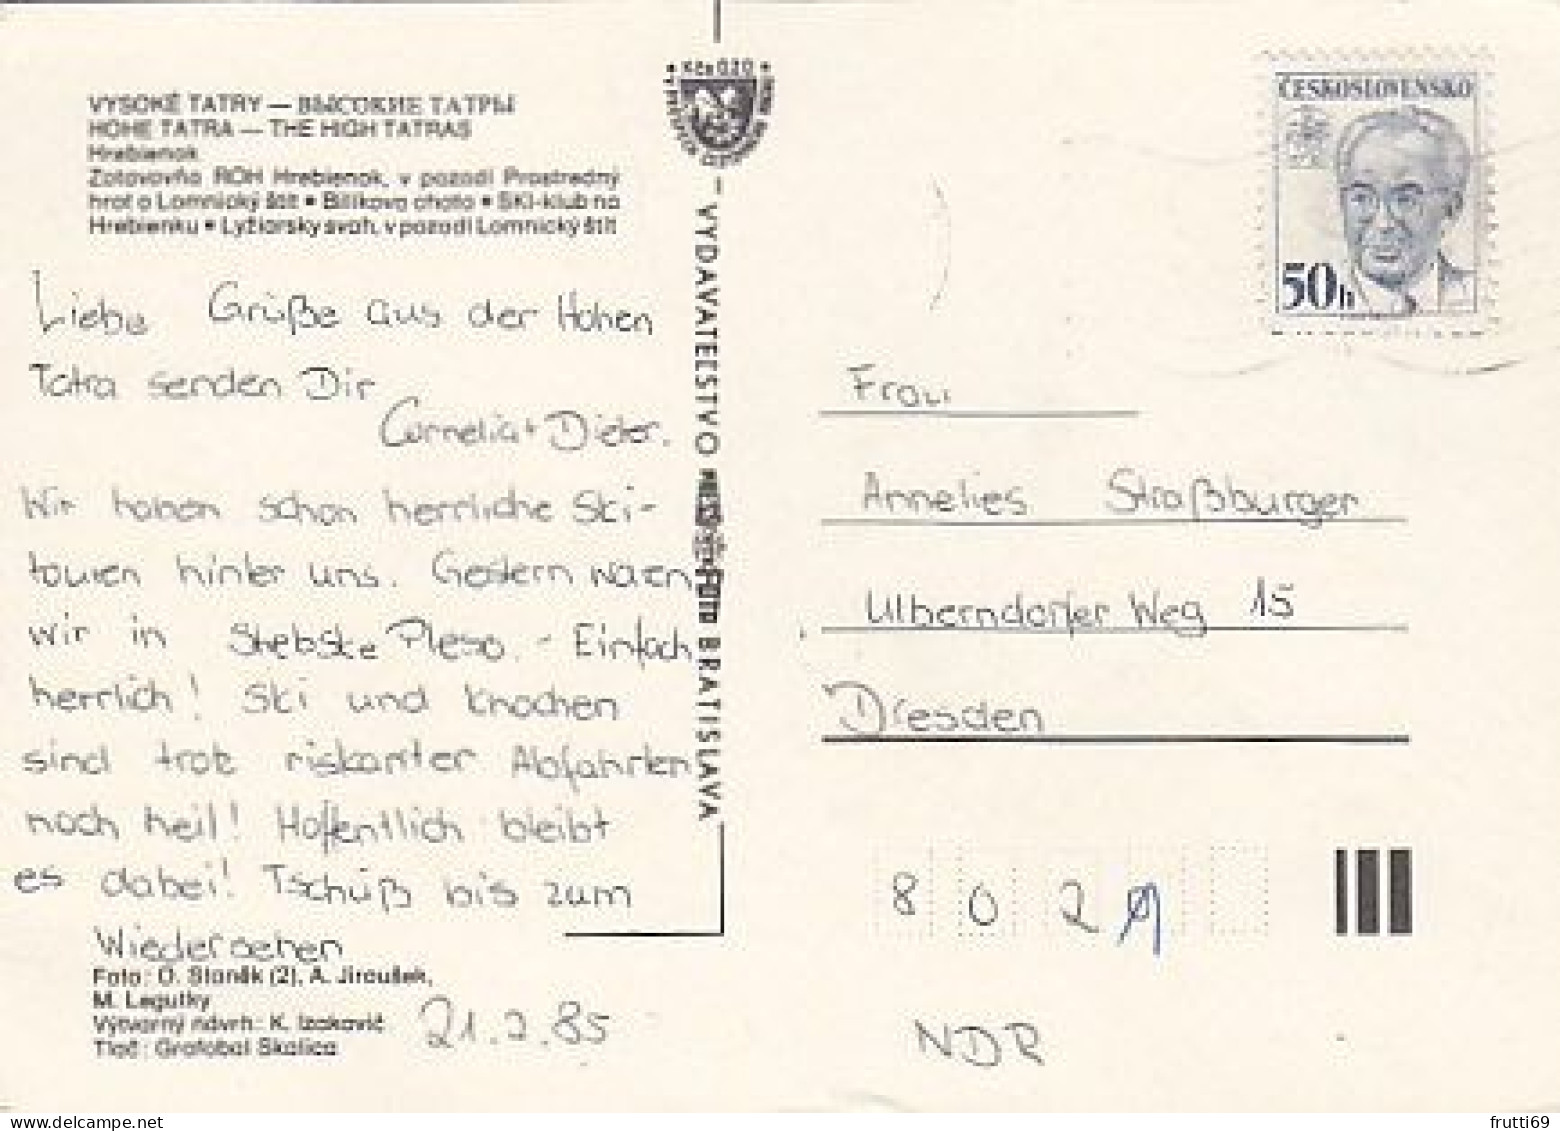 VYSOKÉ TATRY — ВЫСОКИЕ ТАТРЫ
HOHE TATRA — THE HIGH TATRAS
Hrebienok
Zotavovňa ROH Hrebienok, v pozadí Prostredný
hrot a Lomnický štít • Bilíkova chata • SKI-klub na
Hrebienku • Lyžiarsky svah, v pozadí Lomnický štít
Liebe Grüße aus der Hohen
Tatra senden Dir
Cornelia + Dieter.
Wir haben schon herrliche Ski-
touren hinter uns. Gestern waren
wir in Strebske Pleso. - Einfach
herrlich! Ski und Knochen
sind trotz riskanter Abfahrten
noch heil! Hoffentlich bleibt
es dabei! Tschüß bis zum
Wiedersehen
Foto: O. Staněk (2), A. Jiroušek,
M. Legutky
Výtvarný návrh: K. Izakovič
Tlač: Grafobal Skalica
21.2.85
Kčs 0,20
VYDAVATEĽSTVO FOTO BRATISLAVA
ČESKOSLOVENSKO
50h
Frau
Annelies Straßburger
Ulberndorfer Weg 15
Dresden
8 0 2 1
frutti69